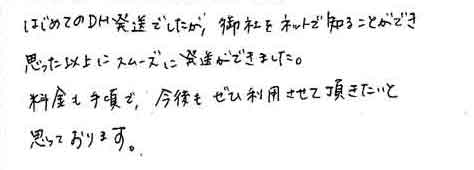 はじめてのDM発送でしたが、御社をネットで知ることができ
思った以上にスムーズに発送ができました。
料金も手頃で、今後もぜひ利用させて頂きたいと
思っております。